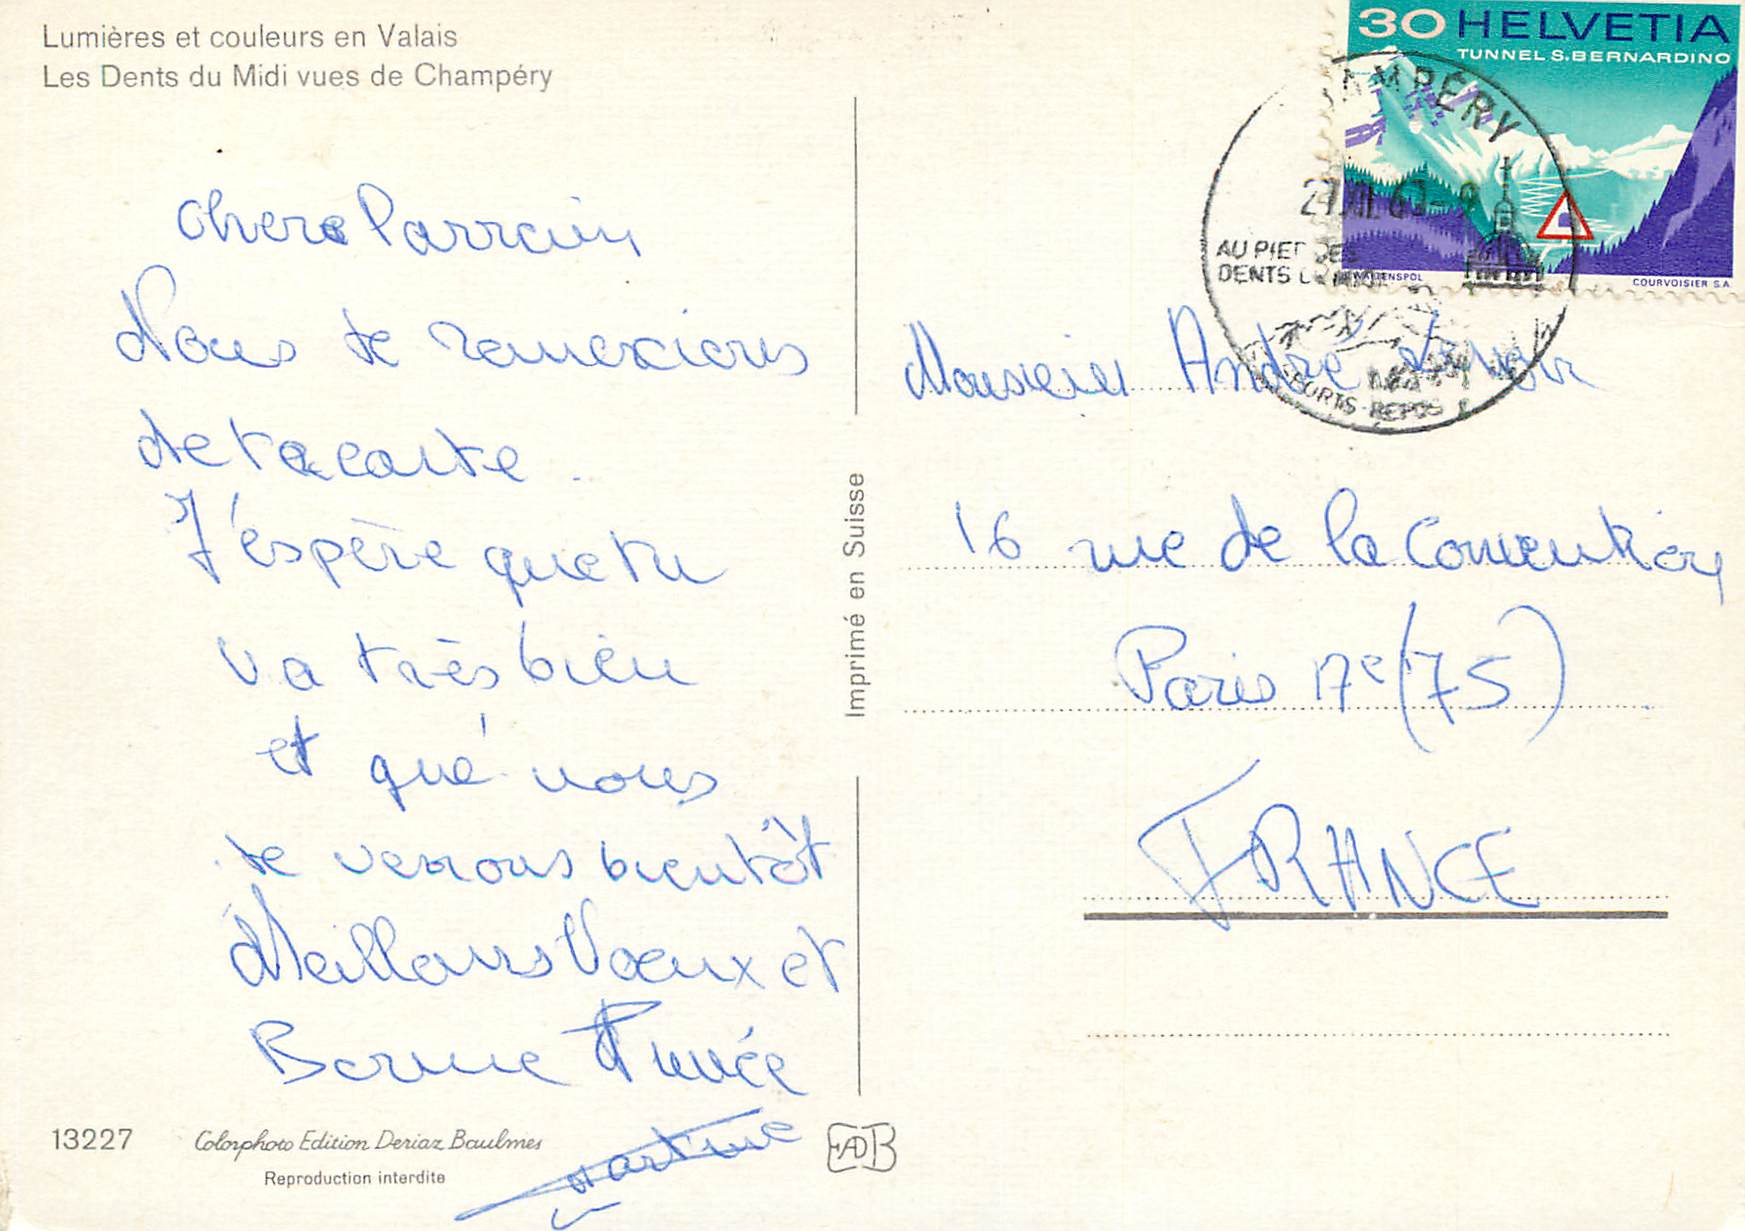 Lumières et couleurs en Valais
Les Dents du Midi vues de Champéry
30 HELVETIA
TUNNEL S.BERNARDINO
COURVOISIER S.A.
AMPÉRY
AU PIED DES
DENTS DU MIDI
SPORTS-REPOS
chere Parrain
Nous te remercions
de ta carte.
J'éspère que tu
va très bien
et que nous
te verrons bientôt
Meilleurs Voeux et
Bonne Année
Martine
Monsieur André
16 rue de la Convention
Paris 17e (75)
FRANCE
Imprimé en Suisse
13227
Colorphoto Edition Deriaz Baulmes
Reproduction interdite